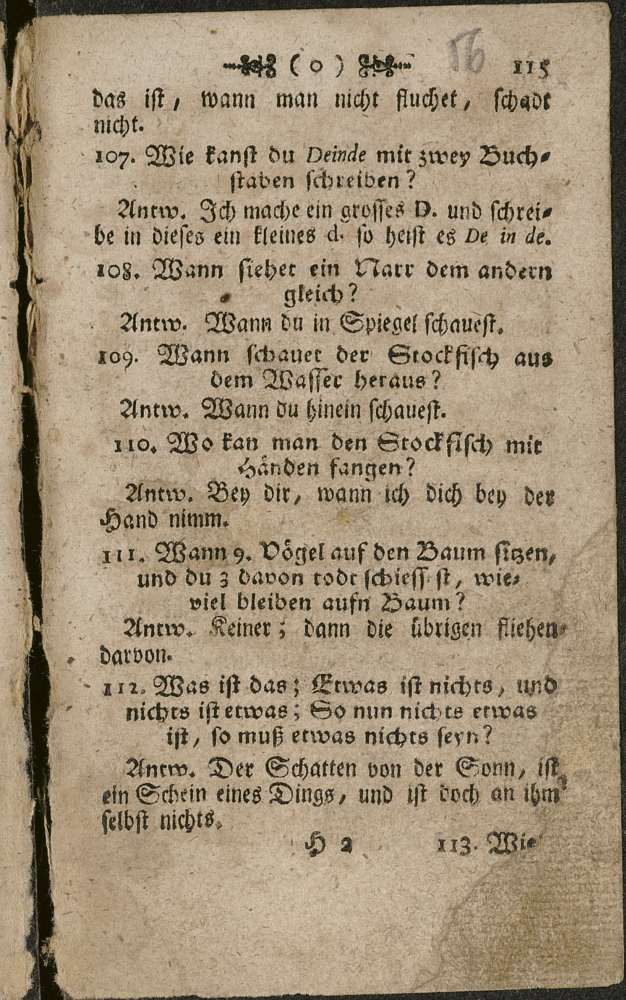 ( o ) 56 115
das ist, wann man nicht fluchet, schadt
nicht.
107. Wie kanst du Deinde mit zwey Buch-
staben schreiben?
Antw. Ich mache ein grosses D. und schrei-
be in dieses ein kleines d. so heist es De in de.
108. Wann siehet ein Narr dem andern
gleich?
Antw. Wann du in Spiegel schauest.
109. Wann schauet der Stockfisch aus
dem Wasser heraus?
Antw. Wann du hinein schauest.
110. Wo kan man den Stockfisch mit
Händen fangen?
Antw. Bey dir, wann ich dich bey der
Hand nimm.
111. Wann 9. Vögel auf den Baum sitzen,
und du 3 davon todt schiessest, wie-
viel bleiben aufn Baum?
Antw. Keiner; dann die übrigen fliehen
darvon.
112. Was ist das; Etwas ist nichts, und
nichts ist etwas; So nun nichts etwas
ist, so muß etwas nichts seyn?
Antw. Der Schatten von der Sonn, ist
ein Schein eines Dings, und ist doch an ihm
selbst nichts.
H 2 113. Wie